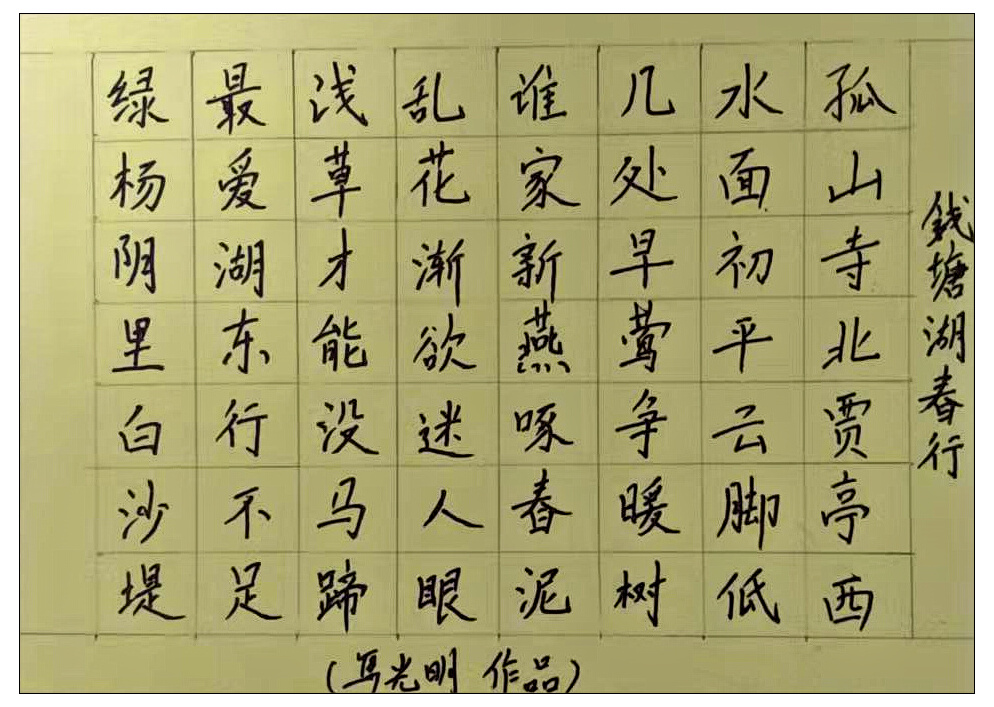 钱塘湖春行
孤山寺北贾亭西
水面初平云脚低
几处早莺争暖树
谁家新燕啄春泥
乱花渐欲迷人眼
浅草才能没马蹄
最爱湖东行不足
绿杨阴里白沙堤
(马光明 作品)